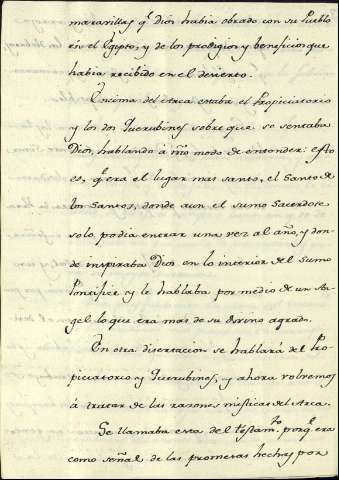 maravillas q.e Dios habia obrado con su Pueblo
en el Egipto, y de los prodigios y beneficios que
habia recibido en el desierto.
Encima del Arca estaba el Propiciatorio
y los dos Querubines sobre que se sentaba
Dios, hablando á nro modo de entender: esto
es, q.e era el lugar mas santo, el Santo de
los Santos, donde aun el sumo Sacerdote
solo podia entrar una vez al año, y don-
de inspiraba Dios en lo interior del sumo
Pontifice y le hablaba por medio de un An-
gel lo que era mas de su divino agrado.
En otra disertacion se hablará del Pro-
piciatorio y Querubines, y ahora volvemos
á tratar de las razones misticas del Arca.
Se llamaba esta del testam.to porq.e era
como señal de las promesas hechas por